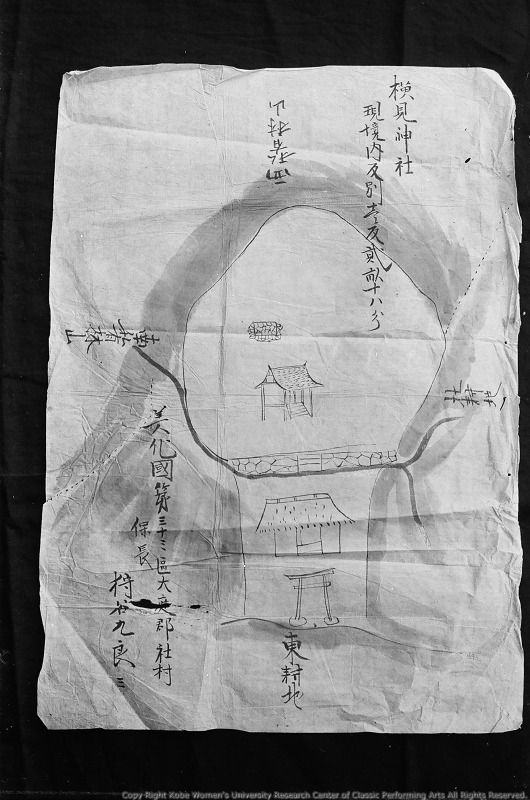 検見神社
現境内反別壱反貳畝十八分
西
南
東耕地
美作國第三十三區大庭郡社村
保長
Copy Right Kobe Women's University Research Center of Classic Performing Arts All Rights Reserved.